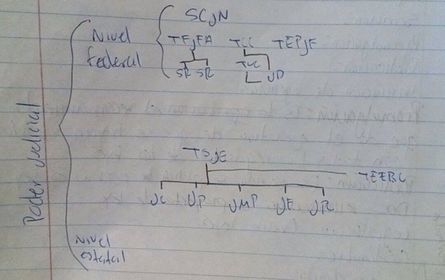 Poder Judicial
Nivel
federal
SCJN
TFJFA TCC TEPJF
SR SR TUC
JD
TSJE
TEEBC
JC JP JMP JE JR
Nivel
estatal